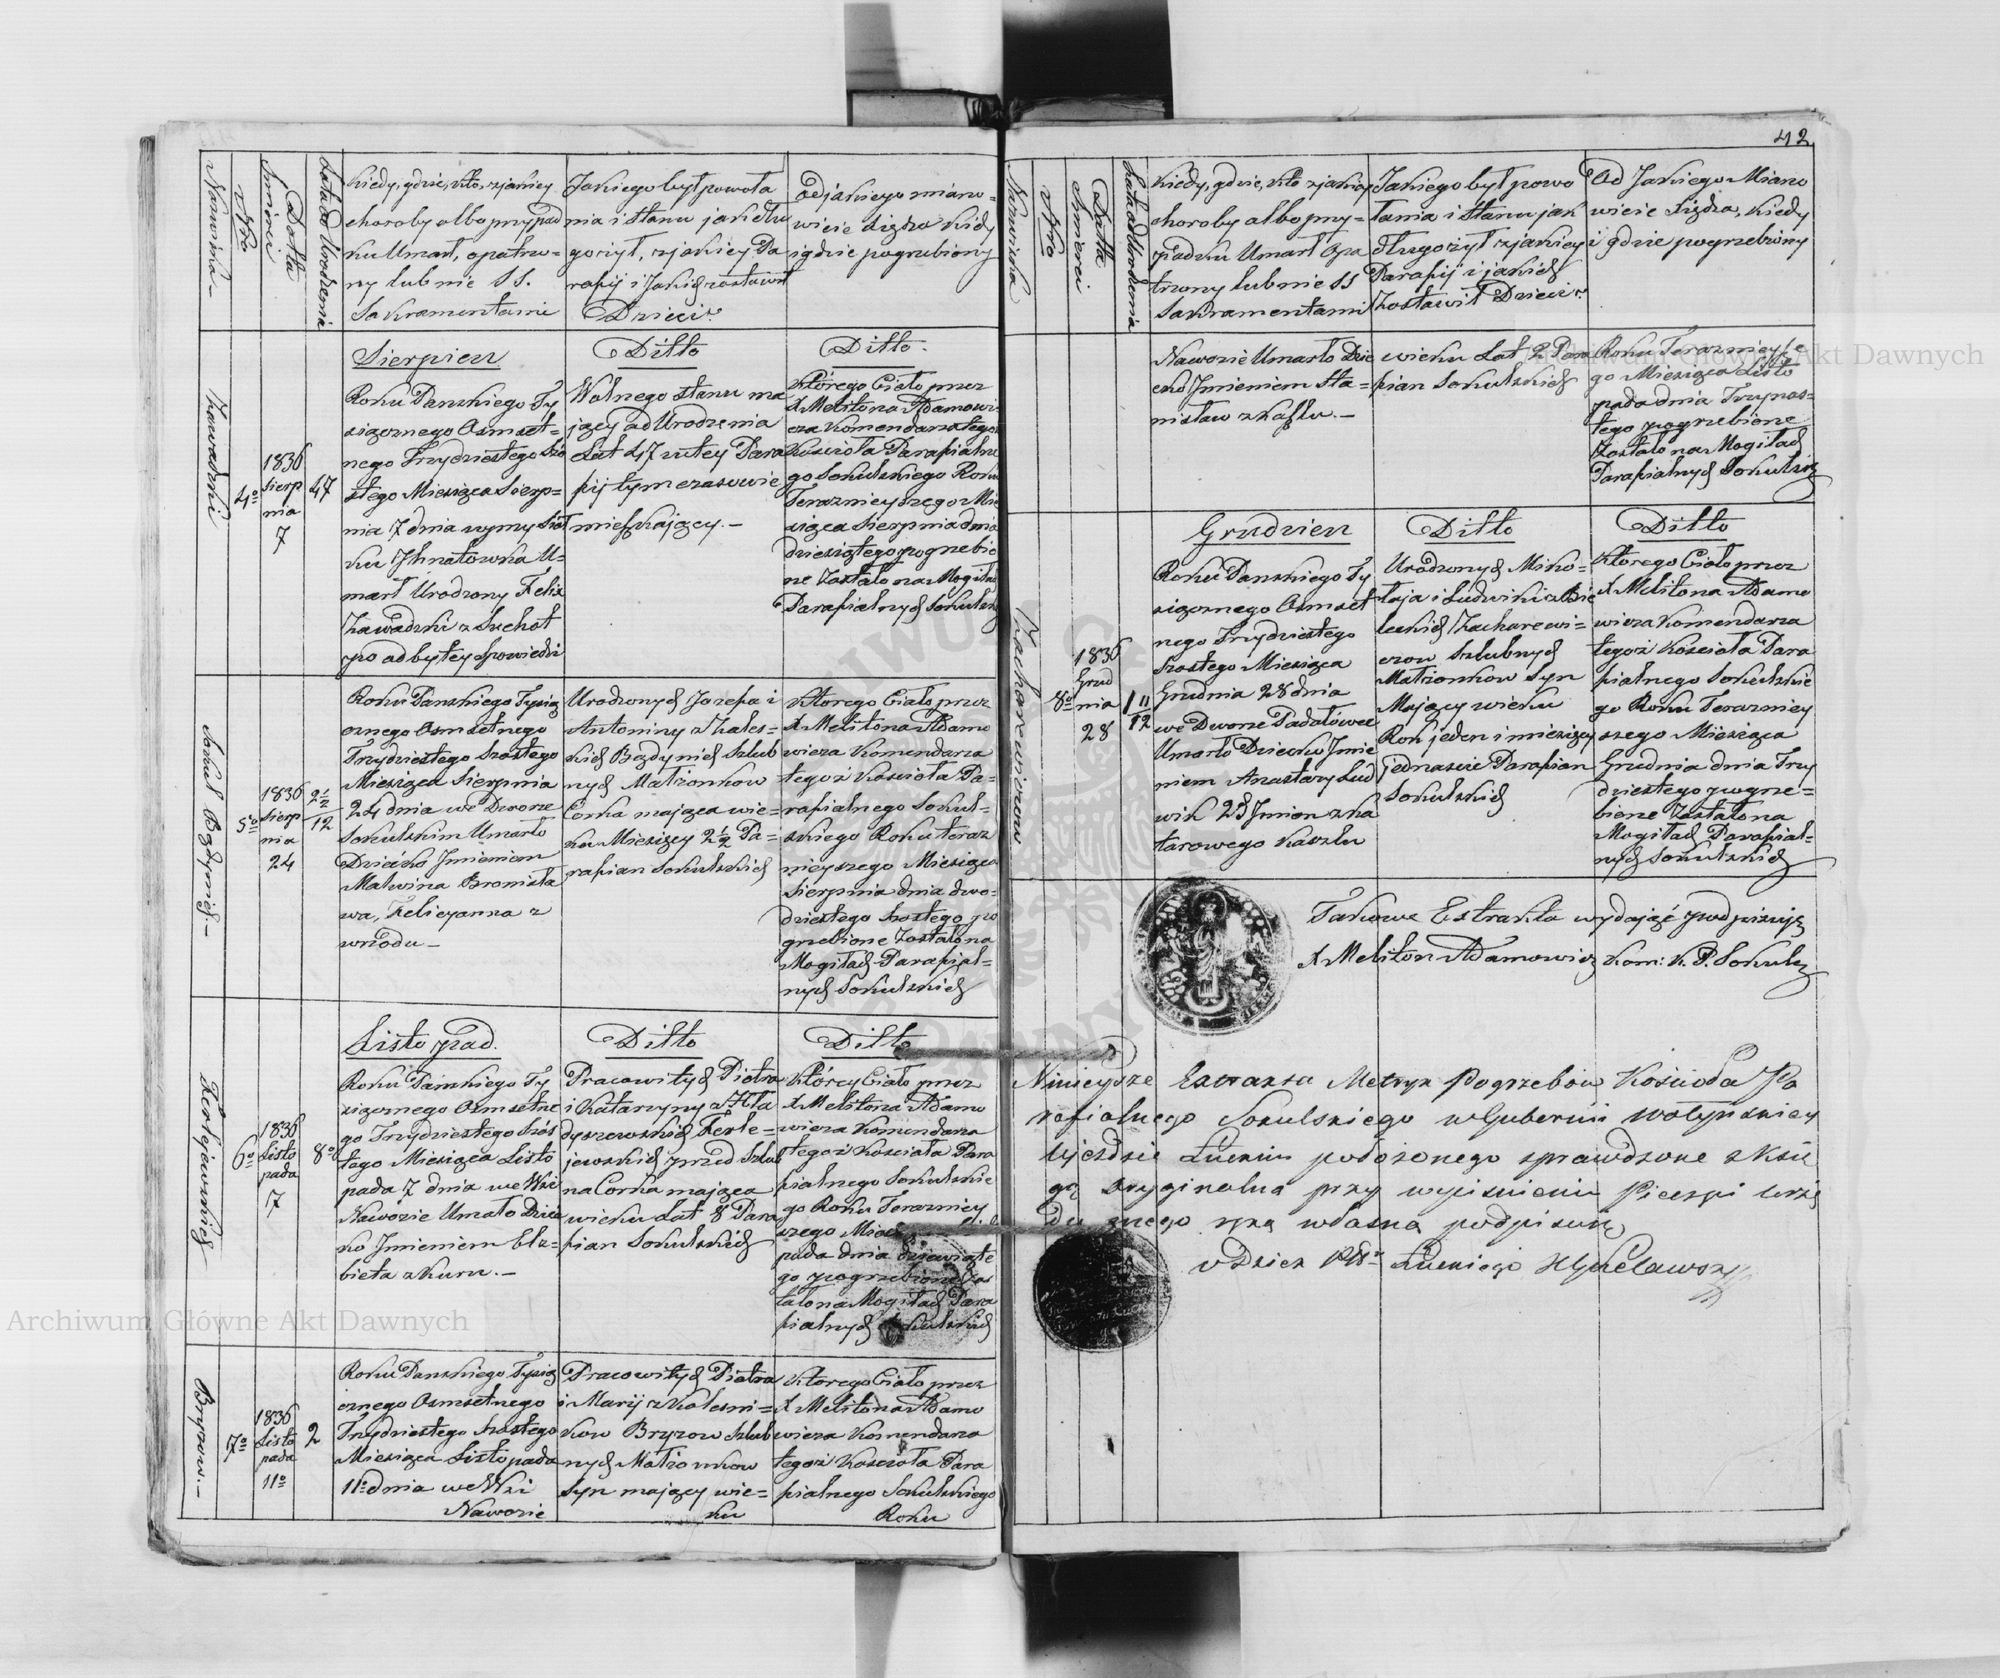 42
Nazwiska
Nro
Datta Smierci
Lata od Urodzenia
Kiedy, gdzie, kto, z jakiey
choroby albo przypad
ku Umarł, opatrzo-
ny lub nie SS.
Sakramentami
Jakiego był powoła
nia i stanu jak dłu
go żył, z jakiey Pa
rafij i Jakich zostawił
Dzieci.
Od jakiego miano-
wicie Xiędza kiedy
i gdzie pogrzebiony
Zawadzki
4o
1836
Sierp
nia
7
47
Sierpien
Roku Panskiego Ty
siącznego Osmset-
nego Trzydziestego Szo
stego Miesiąca Sierp-
nia 7 dnia
ku Ihnatowka U-
marł Urodzony Felix
Zawadzki z Suchot
po odbytey Spowiedzi
Ditto
Wolnego stanu ma
jący od Urodzenia
Lat 47 w tey Para
fij tymczasowie
mieszkający.-
Ditto.
Którego Ciało przez
X Melitona Adamowi-
cza Komendarza tego
Kościoła Parafialne
go Sokulskiego Roku
Terazniejszego Mie
siąca Sierpnia dnia
dziesiątego pogrzebio
ne Zostało na Mogiłach
Parafialnych Sokulskich
Bożydnich.-
5o
1836
Sierp
nia
24
2½
12
Roku Panskiego Tysiąc
cznego Osmsetnego
Trzydziestego Szostego
Miesiąca Sierpnia
24 dnia we Dworze
Sokulskim Umarło
Dziecko Imieniem
Malwina Bronisła
wa, Felicyanna z
wrzodu-
Urodzonych Jozefa i
Antoniny z Zales-
kich Szlub
nych Małżonkow
Corka mająca wie-
ku Miesięcy 2½ Pa-
rafian Sokulskich
Ktorego Ciało przez
X Melitona Adamo
wicza Komendarza
tegoż Kościoła Pa-
rafialnego Sokul-
skiego Roku teraz
nieyszego Miesiąca
Sierpnia dnia dwo-
dziestego szostego po
grzebione Zostało na
Mogiłach Parafial-
nych Sokulskich
6o
1836
Listo
pada
7
8o
Listopad.
Roku Panskiego Ty
siącznego Osmsetne
go Trzydziestego Szós
tego Miesiąca Listo
pada 7 dnia we Wsi
Nawozie Umarło Dziec
ko Imieniem Elz-
bieta z kuru.-
Ditto
Pracowitych Piotra
i Katarzyny z
przed Szlub
na Corka mająca
wieku Lat 8 Para
fian Sokulskich
Ditto
Którey Ciało przez
X Melitona Adamo
wicza Komendarza
tegoż Kościoła Para
fialnego Sokulskie
go Roku Terazniey
szego
pada dnia dziewiąte
go pogrzebione Zos
tało na Mogiłach Para
fialnych Sokulskich
Bryzow.-
7o
1836
Listo
pada
11o
2
Roku Panskiego Tysiąc
cznego Osmsetnego
Trzydziestego Szostego
Miesiąca Listopada
11o dnia we Wsi
Nawozie
Pracowitych Piotra
i Maryi z Kolesni-
kow Bryzow Szlub
nych Małżonkow
syn mający wie-
ku
Ktorego Ciało przez
X Melitona Adamo
wicza Komendarza
tegoż Kościoła Para
fialnego Sokulskiego
Roku
Nazwiska
Nro
Datta Smierci
Lata od Urodzenia
Kiedy, gdzie, kto z jakiey
choroby albo przy-
padku Umarł Opa
trzony lub nie SS
Sakramentami
Jakiego był powo
łania i stanu jak
długo żył, z jakiey
Parafij i jakich
Zostawił Dzieci.
Od Jakiego Miano
wicie Xiędza, kiedy
i gdzie pogrzebiony
Nawozie Umarło Dzie
cko Imieniem Sta-
nisław z Kaszlu.-
wieku Lat 2 Para
fian Sokulskich
Roku Terazniejsze
go Miesiąca Listo
pada dnia Trzynas-
tego pogrzebione
Zostało na Mogiłach
Parafialnych Sokulskich
Zacharewiczow
8o
1836
Grud
nia
28
1 11
12
Grudzien
Roku Panskiego Ty
siącznego Osmset
nego Trzydziestego
Szostego Miesiąca
Grudnia 28 dnia
we Dworze
Umarło Dziecko Imie
niem Anastazy Lud
wik 2ch Imion z ka
tarowego Kaszlu
Ditto
Urodzonych Miko-
łaja i Ludwiki z Bie
leckich Zacharewi-
czow Szlubnych
Małżonkow Syn
Mający wieku
Rok jeden i miesięcy
jednascie Parafian
Sokulskich
Ditto
Ktorego Ciało przez
X Melitona Adamo
wicza Komendarza
tegoż Kościoła Para
fialnego Sokulskie
go Roku Terazniey
szego Miesiąca
Grudnia dnia Trzy
dziestego pogrze-
bione Zostało na
Mogiłach Parafial-
nych Sokulskich
Takowe Extrakta wydając podpisuję
X Meliton Adamowicz Kom: K. P. Sokulz
Ninieysze Extrakta Metryk Pogrzebow Kościoła Pa
rafialnego Sokulskiego w Gubernii Wołyńskiey
Ujezdzie Łuckim położonego sprawdzone z Ksie
gą oryginalną przy wyciśnieniu Pieczęci Urzę
du mego ręką własną podpisuię
Dziek Łuckiego
Archiwum Główne Akt Dawnych
Archiwum Główne Akt Dawnych